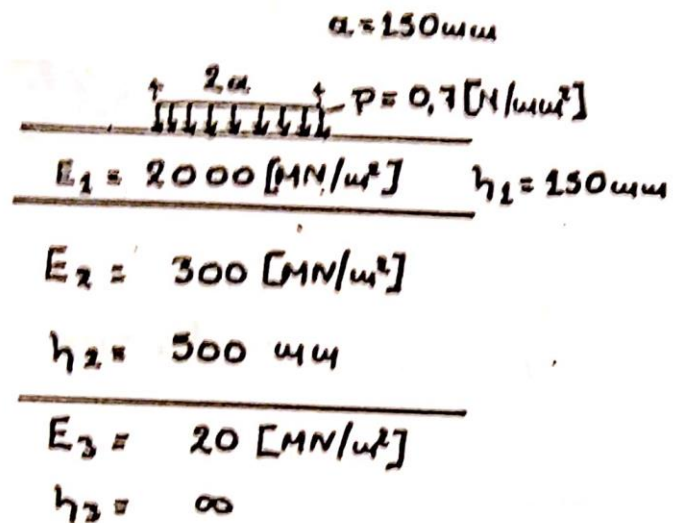 a = 150 mm
2a
P = 0,7 [N/mm²]
E₁ = 2000 [MN/m²] h₁ = 150 mm
E₂ = 300 [MN/m²]
h₂ = 500 mm
E₃ = 20 [MN/m²]
h₃ = ∞